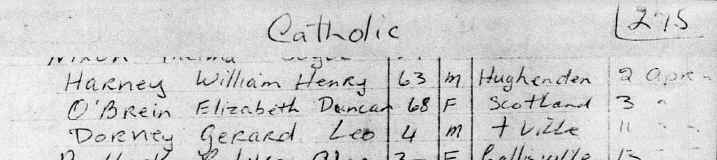 Catholic 275
Harney William Henry 63 M Hughenden 2 Apr "
O'Brein Elizabeth Duncan 68 F Scotland 3 "
Dorney Gerard Leo 4 M Tville 11 " "
F Collinsville 13 "